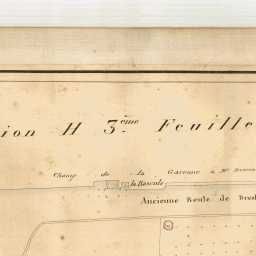 ion H 3.ème Feuille
Champ de la Garenne à Mr
la Bascule
Ancienne Route de